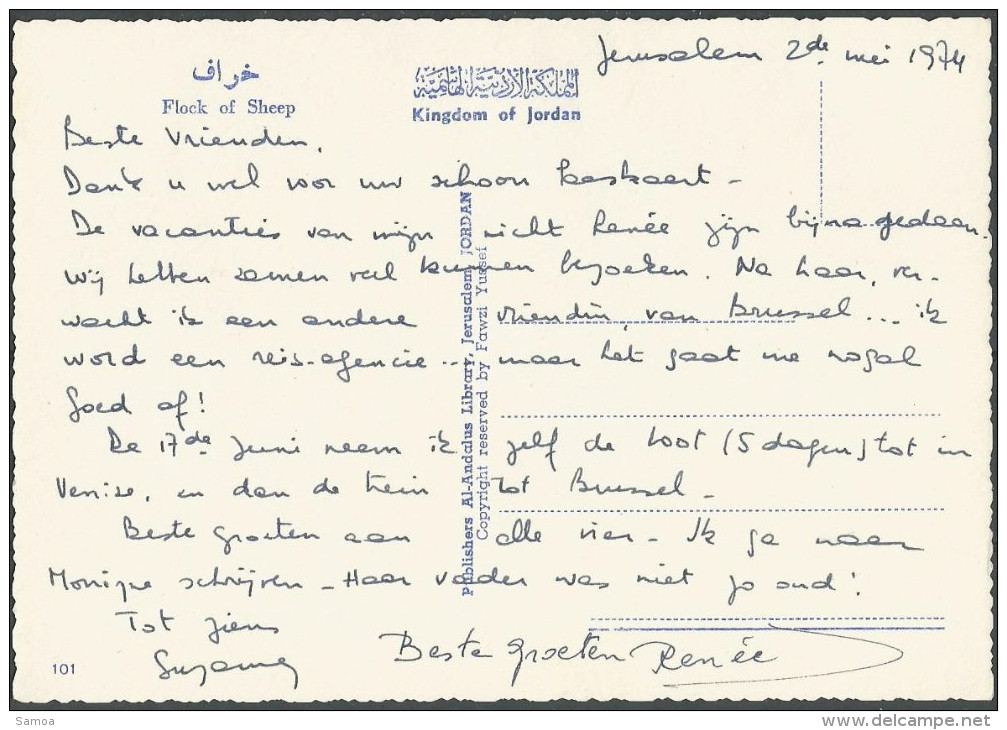 Jerusalem 2de mei 1974
خراف
Flock of Sheep
المملكة الأردنية الهاشمية
Kingdom of Jordan
Beste Vrienden,
Dank u wel voor uw schoon kaart -
De vacanties van mijn nicht Renée zijn bijna gedaan.
Wij hebben samen veel kunnen bezoeken. Na haar, ver-
wacht ik een andere vriendin, van Brussel... ik
word een reis-agencie... maar het gaat me nogal
goed af!
De 17de Juni neem ik zelf de boot (5 dagen) tot in
Venise, en dan de trein tot Brussel -
Beste groeten aan alle vier - Ik ga naar
Monique schrijven - Haar vader was niet zo oud!
Tot ziens
Suzanne
Beste groeten Renée
Publishers Al-Andalus Library, Jerusalem, JORDAN
Copyright reserved by Fawzi Yussef
101
Samoa
delcampe.net